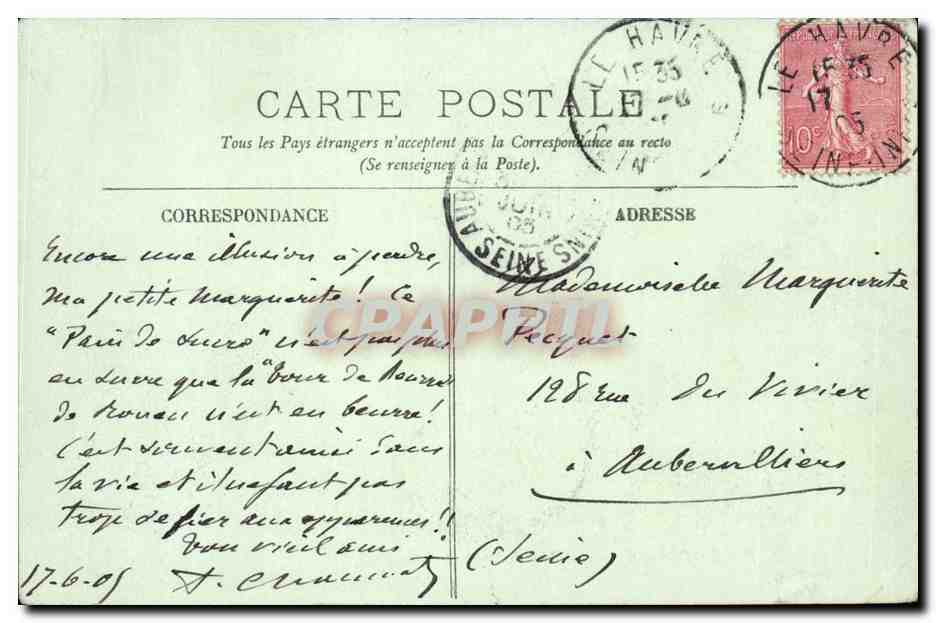 CARTE POSTALE
Tous les Pays étrangers n'acceptent pas la Correspondance au recto
(Se renseigner à la Poste).
CORRESPONDANCE
Encore une illusion à perdre,
Ma petite Marguerite! Ce
"Pain de Sucre" n'est pas plus
en sucre que la "Tour de Beurre"
de Rouen n'est en beurre!
C'est souvent ainsi dans
la vie et il ne faut pas
trop se fier aux apparences!!
Ton vieil ami
17-6-05
ADRESSE
Mademoiselle Marguerite
Pecquet
128 rue du Vivier
à Aubervilliers
(Seine)
LE HAVRE
15 35
LE HAVRE
15 35
17
05
REPUBLIQUE FRANCAISE
10c
JUIN
05
SEINE
CPARTPHIL